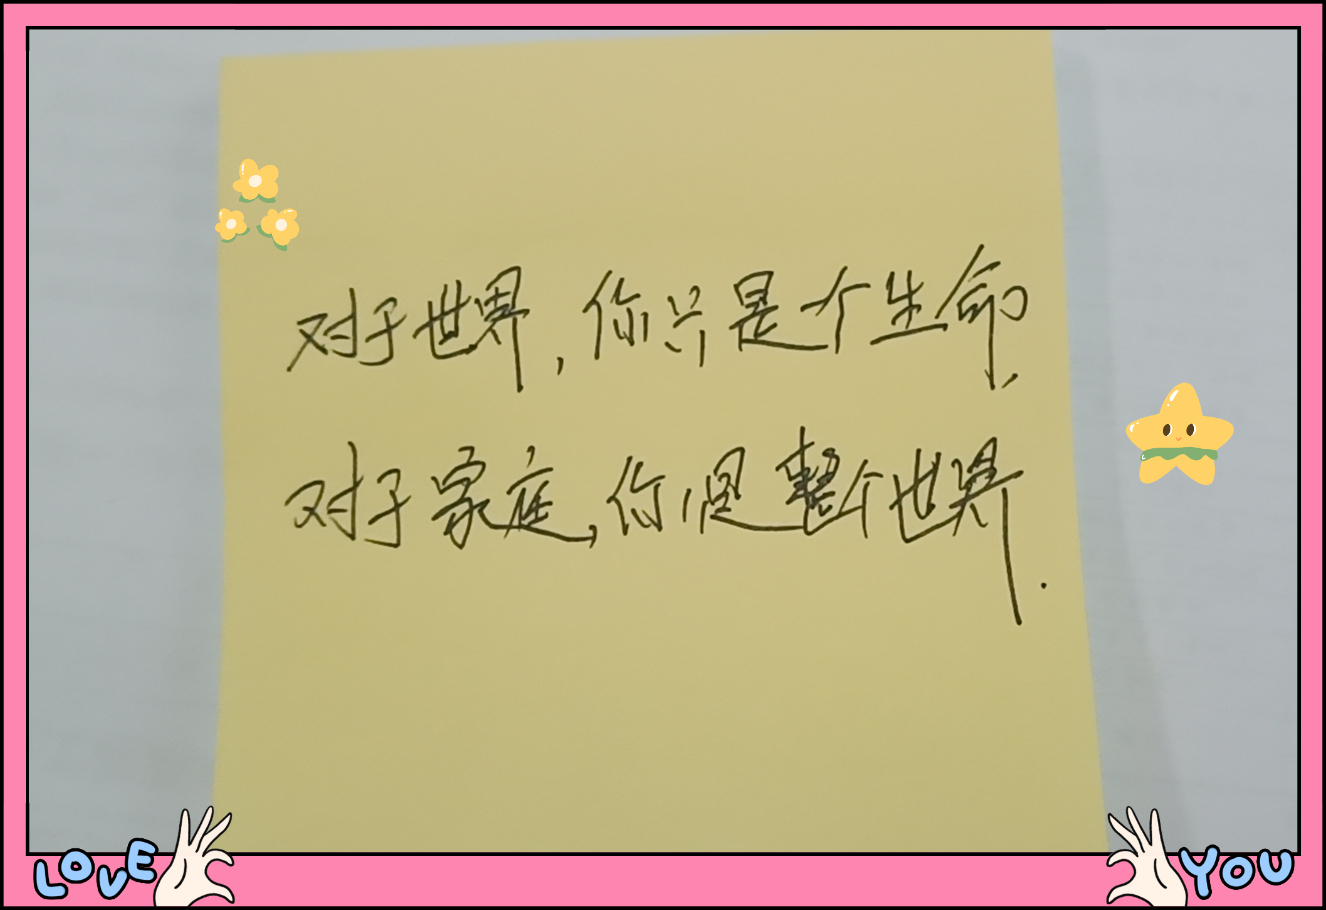 对于世界，你只是一个生命，
对于家庭，你是整个世界.
LOVE YOU